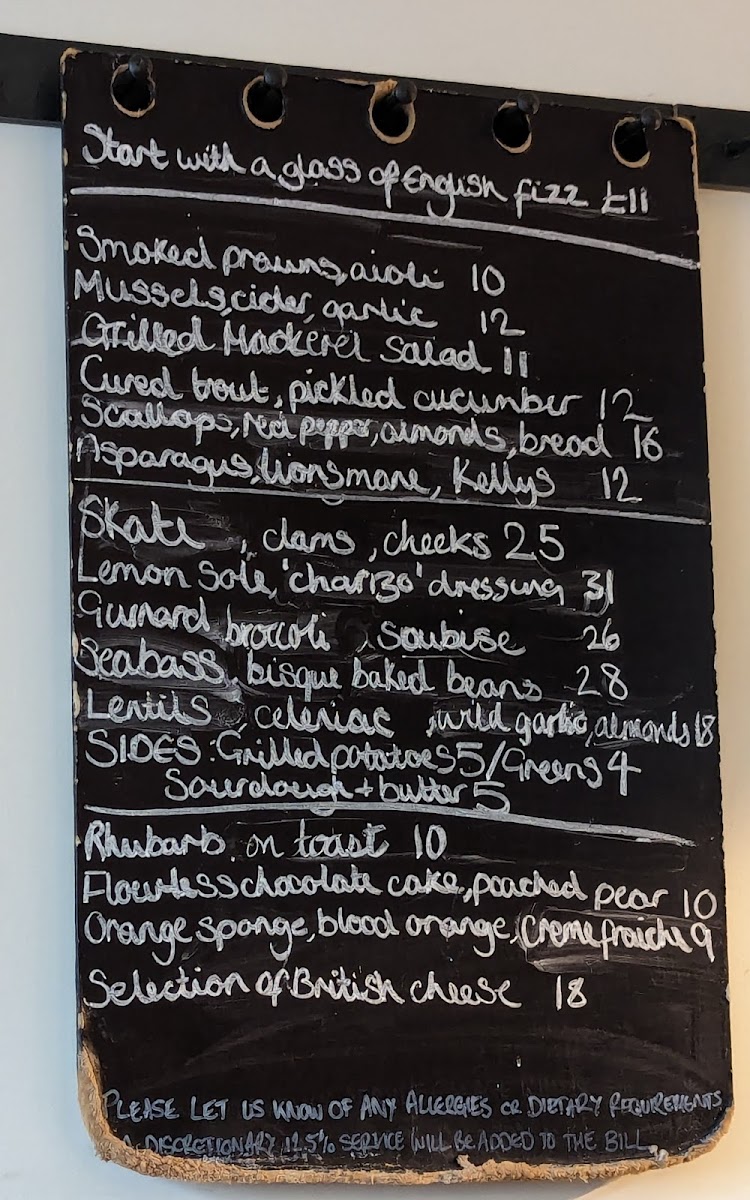 Start with a glass of English fizz £11
Smoked prawns, aioli 10
Mussels, cider, garlic 12
Grilled Mackerel Salad 11
Cured trout, pickled cucumber 12
Scallops, red pepper, almonds, bread 16
Asparagus, lionsmane, Kellys 12
Skate, clams, cheeks 25
Lemon Sole, 'charizo' dressing 31
Gurnard, broccoli, soubise 26
Seabass, bisque baked beans 28
Lentils, celeriac, wild garlic, almonds 18
SIDES: Grilled potatoes 5/Greens 4
Sourdough + butter 5
Rhubarb on toast 10
Flourless chocolate cake, poached pear 10
Orange sponge, blood orange, Creme fraiche 9
Selection of British cheese 18
PLEASE LET US KNOW OF ANY ALLERGIES OR DIETARY REQUIREMENTS
A DISCRETIONARY 12.5% SERVICE WILL BE ADDED TO THE BILL